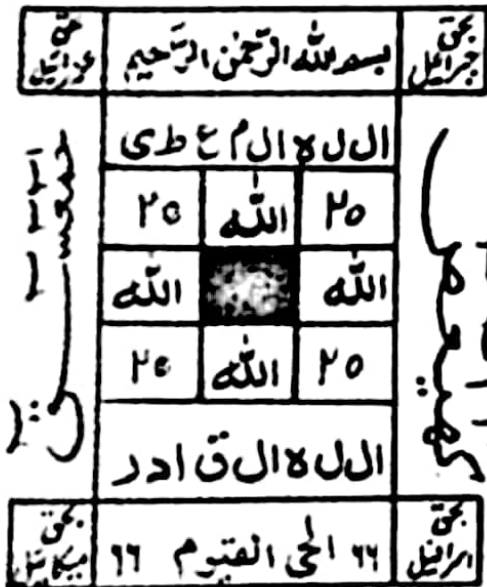 بحق جبرائیل
بسم اللہ الرّحمٰن الرّحیم
بحق عزرائیل
ا ل ل ہ ا ل م ع ط ی
۲۵ اللہ ۲۵
اللہ اللہ
۲۵ اللہ ۲۵
ا ل ل ہ ا ل ق ا د ر
بحق اسرافیل
۶۶ الحی القیوم ۶۶
بحق میکائیل
کھیعص
حمعسق